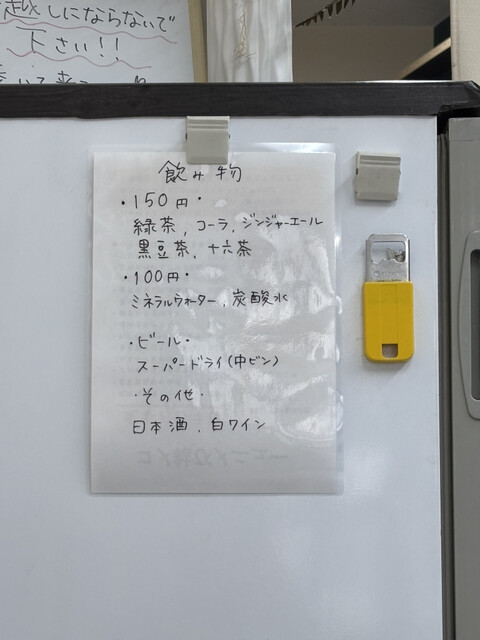 越しにならないで
下さい!!
飲み物
・150円・
緑茶, コーラ, ジンジャーエール
黒豆茶, 十六茶
・100円・
ミネラルウォーター, 炭酸水
・ビール・
スーパードライ(中ビン)
・その他・
日本酒, 白ワイン